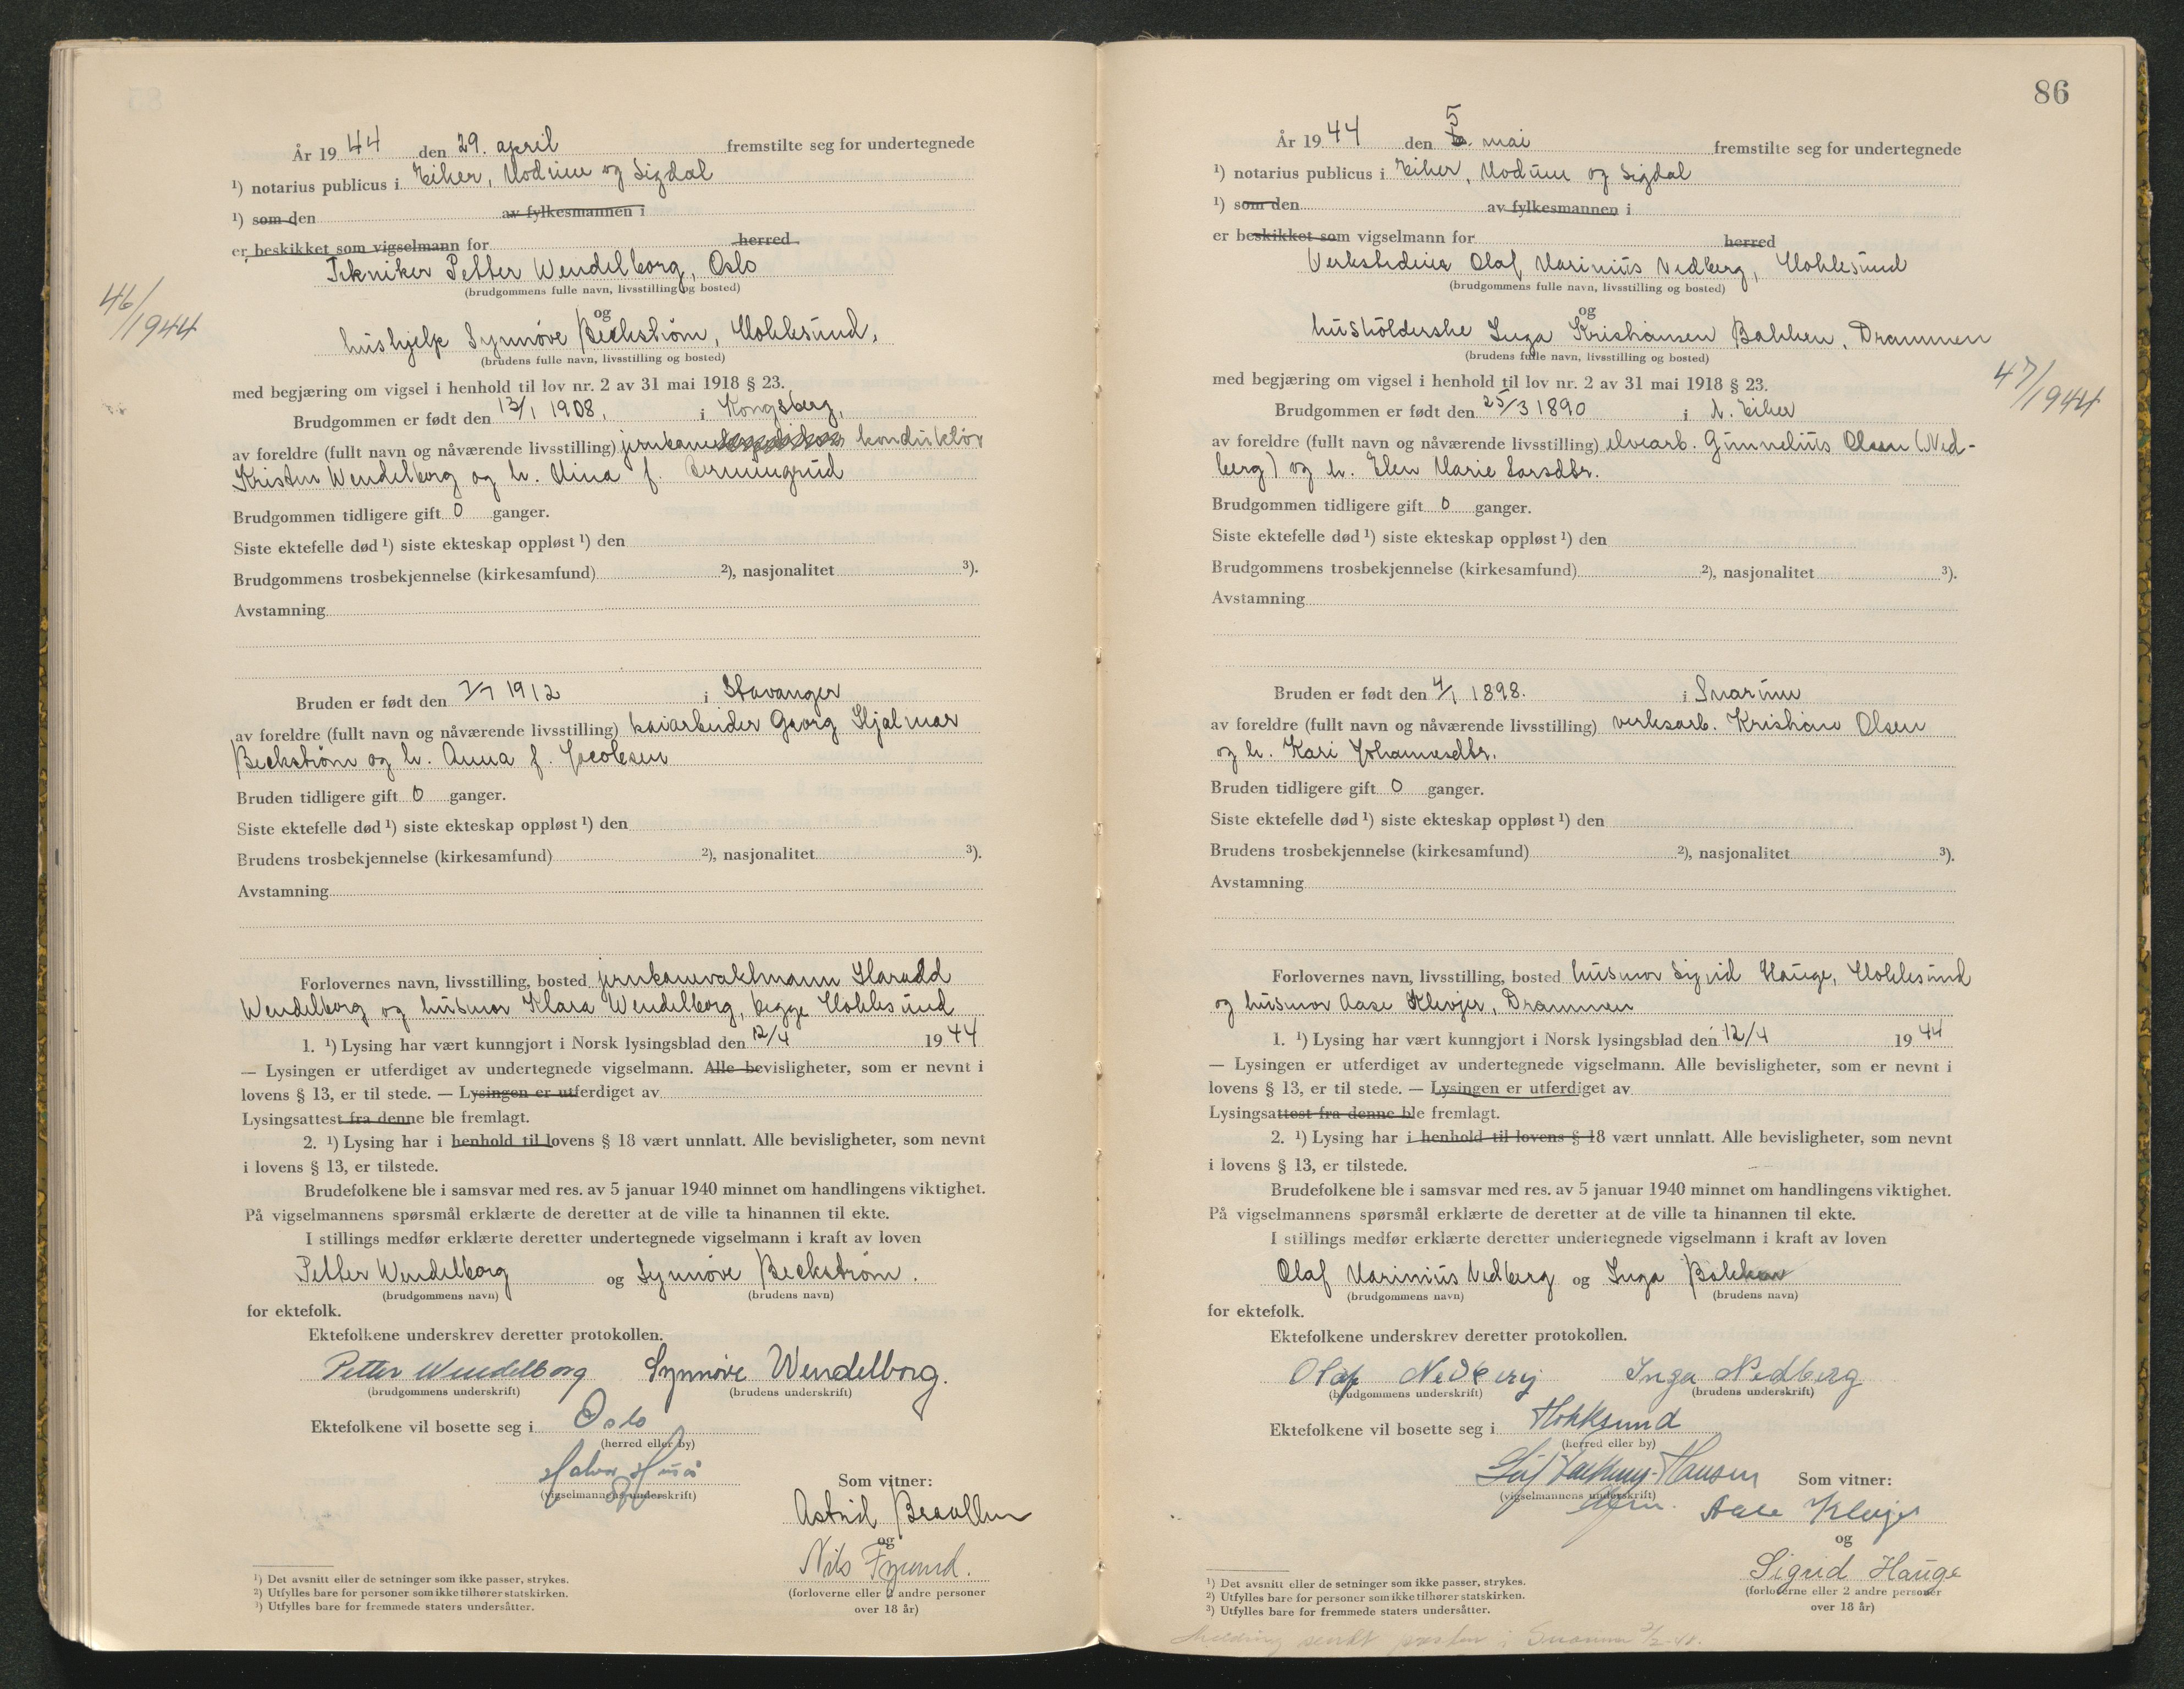 År 1944 den 29. april fremstilte seg for undertegnede
¹) notarius publicus i Eiker, Modum og Sigdal
¹) som den av fylkesmannen i
er beskikket som vigselmann for herred
Tekniker Petter Wendelborg, Oslo
(brudgommens fulle navn, livsstilling og bosted)
og
hushjelp Synnøve Beckstrøm, Hokksund,
(brudens fulle navn, livsstilling og bosted)
46/1944
med begjæring om vigsel i henhold til lov nr. 2 av 31 mai 1918 § 23.
Brudgommen er født den 13/1 1908, i Kongsberg,
av foreldre (fullt navn og nåværende livsstilling) jernbane konduktør
Kristen Wendelborg og h. Mina f.
Brudgommen tidligere gift 0 ganger.
Siste ektefelle død ¹) siste ekteskap oppløst ¹) den
Brudgommens trosbekjennelse (kirkesamfund) ²), nasjonalitet ³).
Avstamning
Bruden er født den 7/7 1912 i Stavanger
av foreldre (fullt navn og nåværende livsstilling) kaiarbeider Georg Hjalmar
Beckstrøm og h. Anna f. Jacobsen
Bruden tidligere gift 0 ganger.
Siste ektefelle død ¹) siste ekteskap oppløst ¹) den
Brudens trosbekjennelse (kirkesamfund) ²), nasjonalitet ³).
Avstamning
Forlovernes navn, livsstilling, bosted jernbanevaktmann Harald
Wendelborg og husmor Klara Wendelborg, begge Hokksund
1. ¹) Lysing har vært kunngjort i Norsk lysingsblad den 12/4 1944
— Lysingen er utferdiget av undertegnede vigselmann. Alle bevisligheter, som er nevnt i
lovens § 13, er til stede. — Lysingen er utferdiget av
Lysingsattest fra denne ble fremlagt.
2. ¹) Lysing har i henhold til lovens § 18 vært unnlatt. Alle bevisligheter, som nevnt
i lovens § 13, er tilstede.
Brudefolkene ble i samsvar med res. av 5 januar 1940 minnet om handlingens viktighet.
På vigselmannens spørsmål erklærte de deretter at de ville ta hinannen til ekte.
I stillings medfør erklærte deretter undertegnede vigselmann i kraft av loven
Petter Wendelborg og Synnøve Beckstrøm.
(brudgommens navn) (brudens navn)
for ektefolk.
Ektefolkene underskrev deretter protokollen.
Petter Wendelborg Synnøve Wendelborg.
(brudgommens underskrift) (brudens underskrift)
Ektefolkene vil bosette seg i Oslo
(herred eller by)
Halvor
(vigselmannens underskrift)
Som vitner:
Astrid Braathen
og
Nils
(forloverne eller 2 andre personer
over 18 år)
¹) Det avsnitt eller de setninger som ikke passer, strykes.
²) Utfylles bare for personer som ikke tilhører statskirken.
³) Utfylles bare for fremmede staters undersåtter.
86
År 1944 den 5. mai fremstilte seg for undertegnede
¹) notarius publicus i Eiker, Modum og Sigdal
¹) som den av fylkesmannen i
er beskikket som vigselmann for herred
Verkstedeier Olaf Marinius Nedberg, Hokksund
(brudgommens fulle navn, livsstilling og bosted)
og
husholderske Inga Kristiansen Bakken, Drammen
(brudens fulle navn, livsstilling og bosted)
47/1944
med begjæring om vigsel i henhold til lov nr. 2 av 31 mai 1918 § 23.
Brudgommen er født den 25/3 1890 i N. Eiker
av foreldre (fullt navn og nåværende livsstilling) elvearb. Gunnelius Olsen (Ned-
berg) og h. Elen Marie Larsdtr.
Brudgommen tidligere gift 0 ganger.
Siste ektefelle død ¹) siste ekteskap oppløst ¹) den
Brudgommens trosbekjennelse (kirkesamfund) ²), nasjonalitet ³).
Avstamning
Bruden er født den 4/1 1898. i Snarum
av foreldre (fullt navn og nåværende livsstilling) verksarb. Kristian Olsen
og h. Kari Johannesdtr.
Bruden tidligere gift 0 ganger.
Siste ektefelle død ¹) siste ekteskap oppløst ¹) den
Brudens trosbekjennelse (kirkesamfund) ²), nasjonalitet ³).
Avstamning
Forlovernes navn, livsstilling, bosted husmor Sigrid Hauge, Hokksund
og husmor Aase Klevjer, Drammen
1. ¹) Lysing har vært kunngjort i Norsk lysingsblad den 12/4 1944
— Lysingen er utferdiget av undertegnede vigselmann. Alle bevisligheter, som er nevnt i
lovens § 13, er til stede. — Lysingen er utferdiget av
Lysingsattest fra denne ble fremlagt.
2. ¹) Lysing har i henhold til lovens § 18 vært unnlatt. Alle bevisligheter, som nevnt
i lovens § 13, er tilstede.
Brudefolkene ble i samsvar med res. av 5 januar 1940 minnet om handlingens viktighet.
På vigselmannens spørsmål erklærte de deretter at de ville ta hinannen til ekte.
I stillings medfør erklærte deretter undertegnede vigselmann i kraft av loven
Olaf Marinius Nedberg og Inga Bakken
(brudgommens navn) (brudens navn)
for ektefolk.
Ektefolkene underskrev deretter protokollen.
Olaf Nedberg Inga Nedberg
(brudgommens underskrift) (brudens underskrift)
Ektefolkene vil bosette seg i Hokksund
(herred eller by)
Hansen
(vigselmannens underskrift)
Som vitner:
Aase Klevjer
og
Sigrid Hauge
(forloverne eller 2 andre personer
over 18 år)
¹) Det avsnitt eller de setninger som ikke passer, strykes.
²) Utfylles bare for personer som ikke tilhører statskirken.
³) Utfylles bare for fremmede staters undersåtter.
Melding sendt presten i Snarum